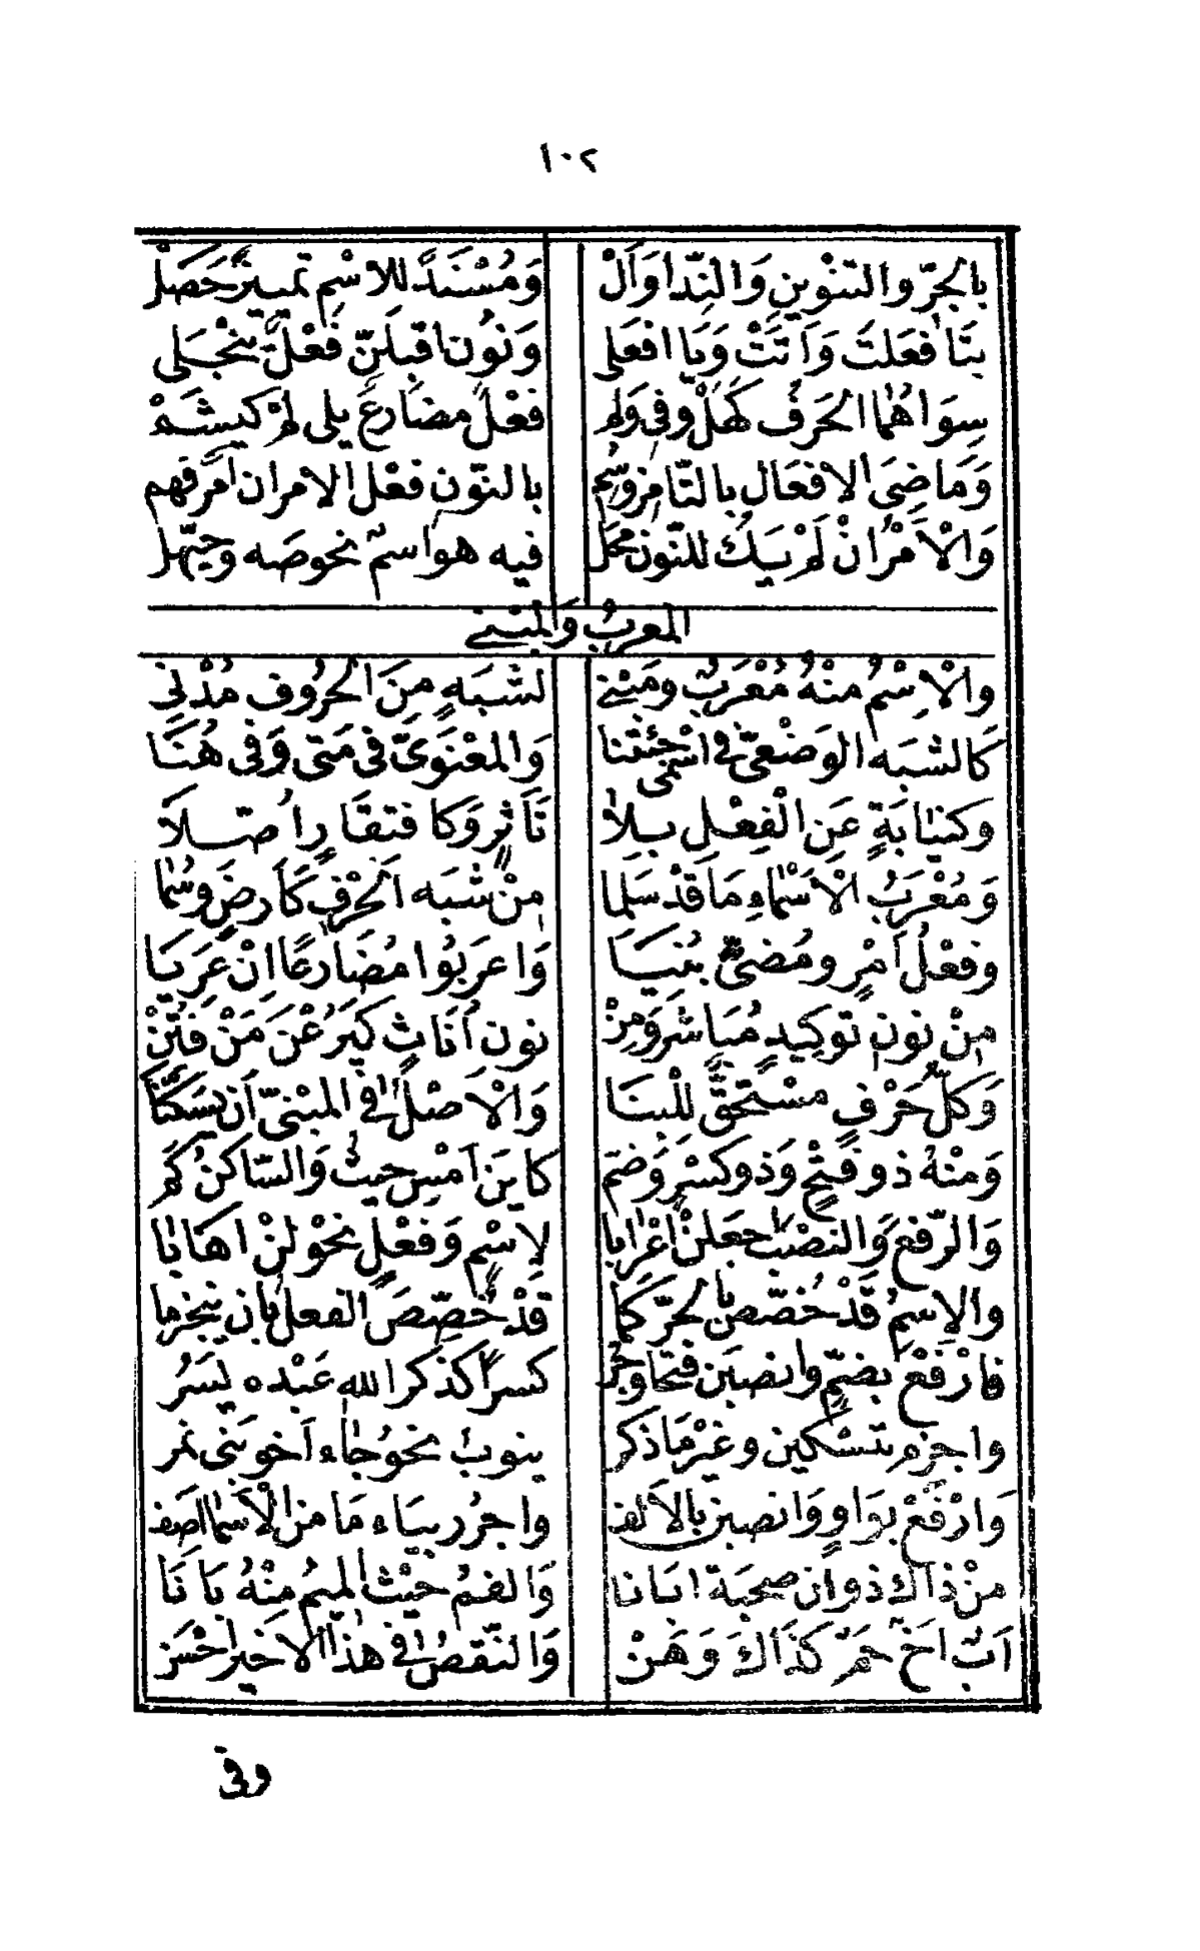 ١٠٢
بالجرّ والتنْوينِ وَالنِّدا وَاَلْ وَمُسْنَدً للاسْمِ تمييزٌ حَصَلْ
بتَا فَعَلتَ وَاَتَتْ وَيَا افعَلى وَنُونِ اقبِلَنّ فَعْلٌ ينْجَلى
سِوَاهُمَا الحَرفُ كَهَلْ وَفى وَلم فعْلٌ مضَارعٌ يلى لَمْ كيشَمْ
وَمَاضِىَ الافعَالِ بالتَّا مِزْ وَسِم بالنّونِ فعْلَ الامر ان اَمر فهم
وَالْاَمْرُ انْ لَمْ يَكُ للنّون محَل فيه هو اسمٌ نحو صَه وَحيّهل
المعربُ وَالمبْنے
والْاِسْمُ منْهُ مُعْرَبٌ ومَبْنے لشَبَهٍ مِنَ الحُرُوفِ مُدْنى
كَالشبَه الوَضْعىّ فى اسْمَى جئتَنا وَالمعْنَوَىّ فى مَتى وَفى هُنَا
وكنيَابَةٍ عَن الْفِعْلِ بلَا تَأثرٍ وَكافتقَارٍ اُصّلَا
وَمُعْرَبُ الْاَسْمَاءِ مَا قَدْ سَلمَا مِنْ شَبَه اَلحَرْفِ كَاَرضٍ وَسُمَا
وفعْلُ اَمْرٍ ومُضىٍّ بُنيَا وَاعرَبُوا مُضَارعًا اِنْ عَريَا
مِنْ نونِ توكِيدٍ مُبَاشرٍ وَمِنْ نونِ اُنَاثٍ كيَرُعْنَ مَنْ فُتنْ
وَكلّ حَرْفٍ مسْتحقٌّ للْبنَا وَالْاَصْلُ فى المبْنىّ اَن يُسَكّنَا
وَمنْهُ ذو فَتْحٍ وَذو كسْرٍ وَضَم كاَينَ اَمْسِ حيثُ وَالسّاكنُ كَم
وَالرّفعَ وَالنصْبَ اجعَلنْ اعْرَابا لاِسْمٍ وَفعْلٍ نحْو لنْ اهَابا
والاِسمُ قَدْ خُصّصَ بالجرّ كَما قَدْ خُصِّصَ الفعل بان ينجزما
فارْفَعْ بضَمٍّ وانصبَن فتحًا وَجُر كسرًا كذكرُ اللهِ عَبْده يَسُر
واجزم بتسْكين وغيْرُ مَا ذكر ينوبُ نحوُ جَاء اَخو بَنى نمر
وَارْفَعْ بوَاوٍ وَانصبن بالاَلف واجرُر بيَاء مَا من الْاَسما اَصف
منْ ذَاك ذو ان صحبَة ابَانا وَالفمُ حَيْث الميمُ منْهُ بَانَا
اَبٌ اَخٌ حَمٌ كذَاكَ وَهَنْ وَالنّقصُ فى هذَا الاخير اَحْسَن
وفى